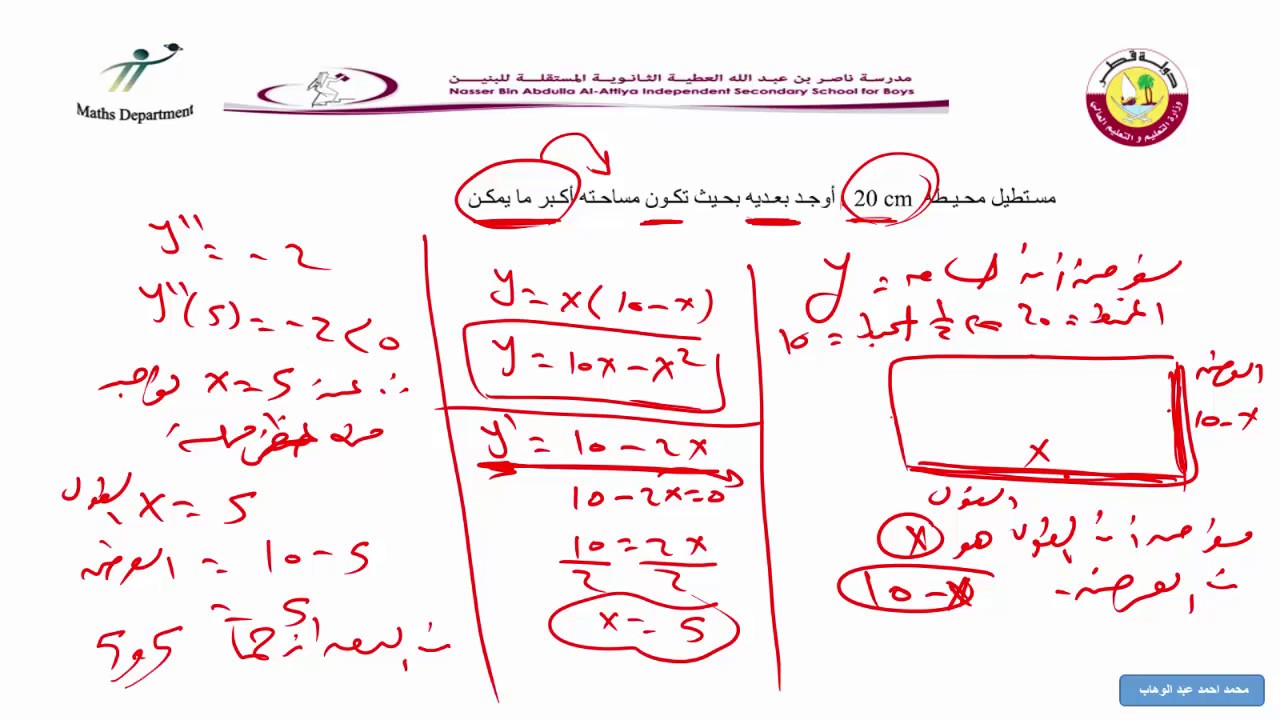 Maths Department
مدرسة ناصر بن عبد الله العطية الثانوية المستقلة للبنين
Nasser Bin Abdulla Al-Attiya Independent Secondary School for Boys
دولة قطر
وزارة التعليم و التعليم العالي
مستطيل محيطه 20 cm أوجد بعديه بحيث تكون مساحته أكبر ما يمكن
y =
المحيط = 20 1/2 المحيط = 10
العرض
10 - x
x
الطول
الطول هو x
العرض 10 - x
y = x(10 - x)
y = 10x - x²
y' = 10 - 2x
10 - 2x = 0
10/2 = 2x/2
x = 5
y'' = -2
y''(5) = -2 < 0
∴ عند x = 5 توجد
الطول x = 5
العرض = 10 - 5
= 5
5 و 5
محمد احمد عبد الوهاب